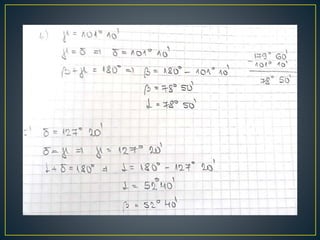 b) γ = 101° 10'
γ = δ ⇒ δ = 101° 10'
β + γ = 180° ⇒ β = 180° - 101° 10'
β = 78° 50'
α = 78° 50'
- 179° 60'
101° 10'
78° 50'
δ = 127° 20'
δ = γ ⇒ γ = 127° 20'
α + δ = 180° ⇒ α = 180° - 127° 20'
α = 52° 40'
β = 52° 40'